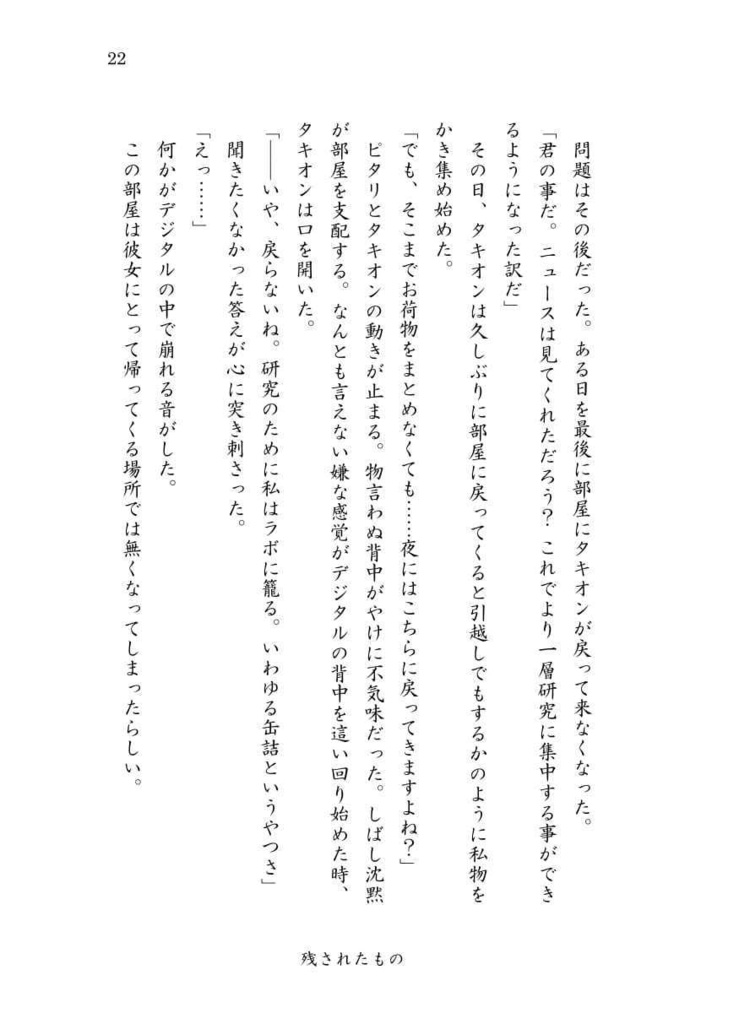 22
問題はその後だった。ある日を最後に部屋にタキオンが戻って来なくなった。
「君の事だ。ニュースは見てくれただろう？ これでより一層研究に集中する事ができ
るようになった訳だ」
その日、タキオンは久しぶりに部屋に戻ってくると引越しでもするかのように私物を
かき集め始めた。
「でも、そこまでお荷物をまとめなくても……夜にはこちらに戻ってきますよね？」
ピタリとタキオンの動きが止まる。物言わぬ背中がやけに不気味だった。しばし沈黙
が部屋を支配する。なんとも言えない嫌な感覚がデジタルの背中を這い回り始めた時、
タキオンは口を開いた。
「――いや、戻らないね。研究のために私はラボに籠る。いわゆる缶詰というやつさ」
聞きたくなかった答えが心に突き刺さった。
「えっ……」
何かがデジタルの中で崩れる音がした。
この部屋は彼女にとって帰ってくる場所では無くなってしまったらしい。
残されたもの